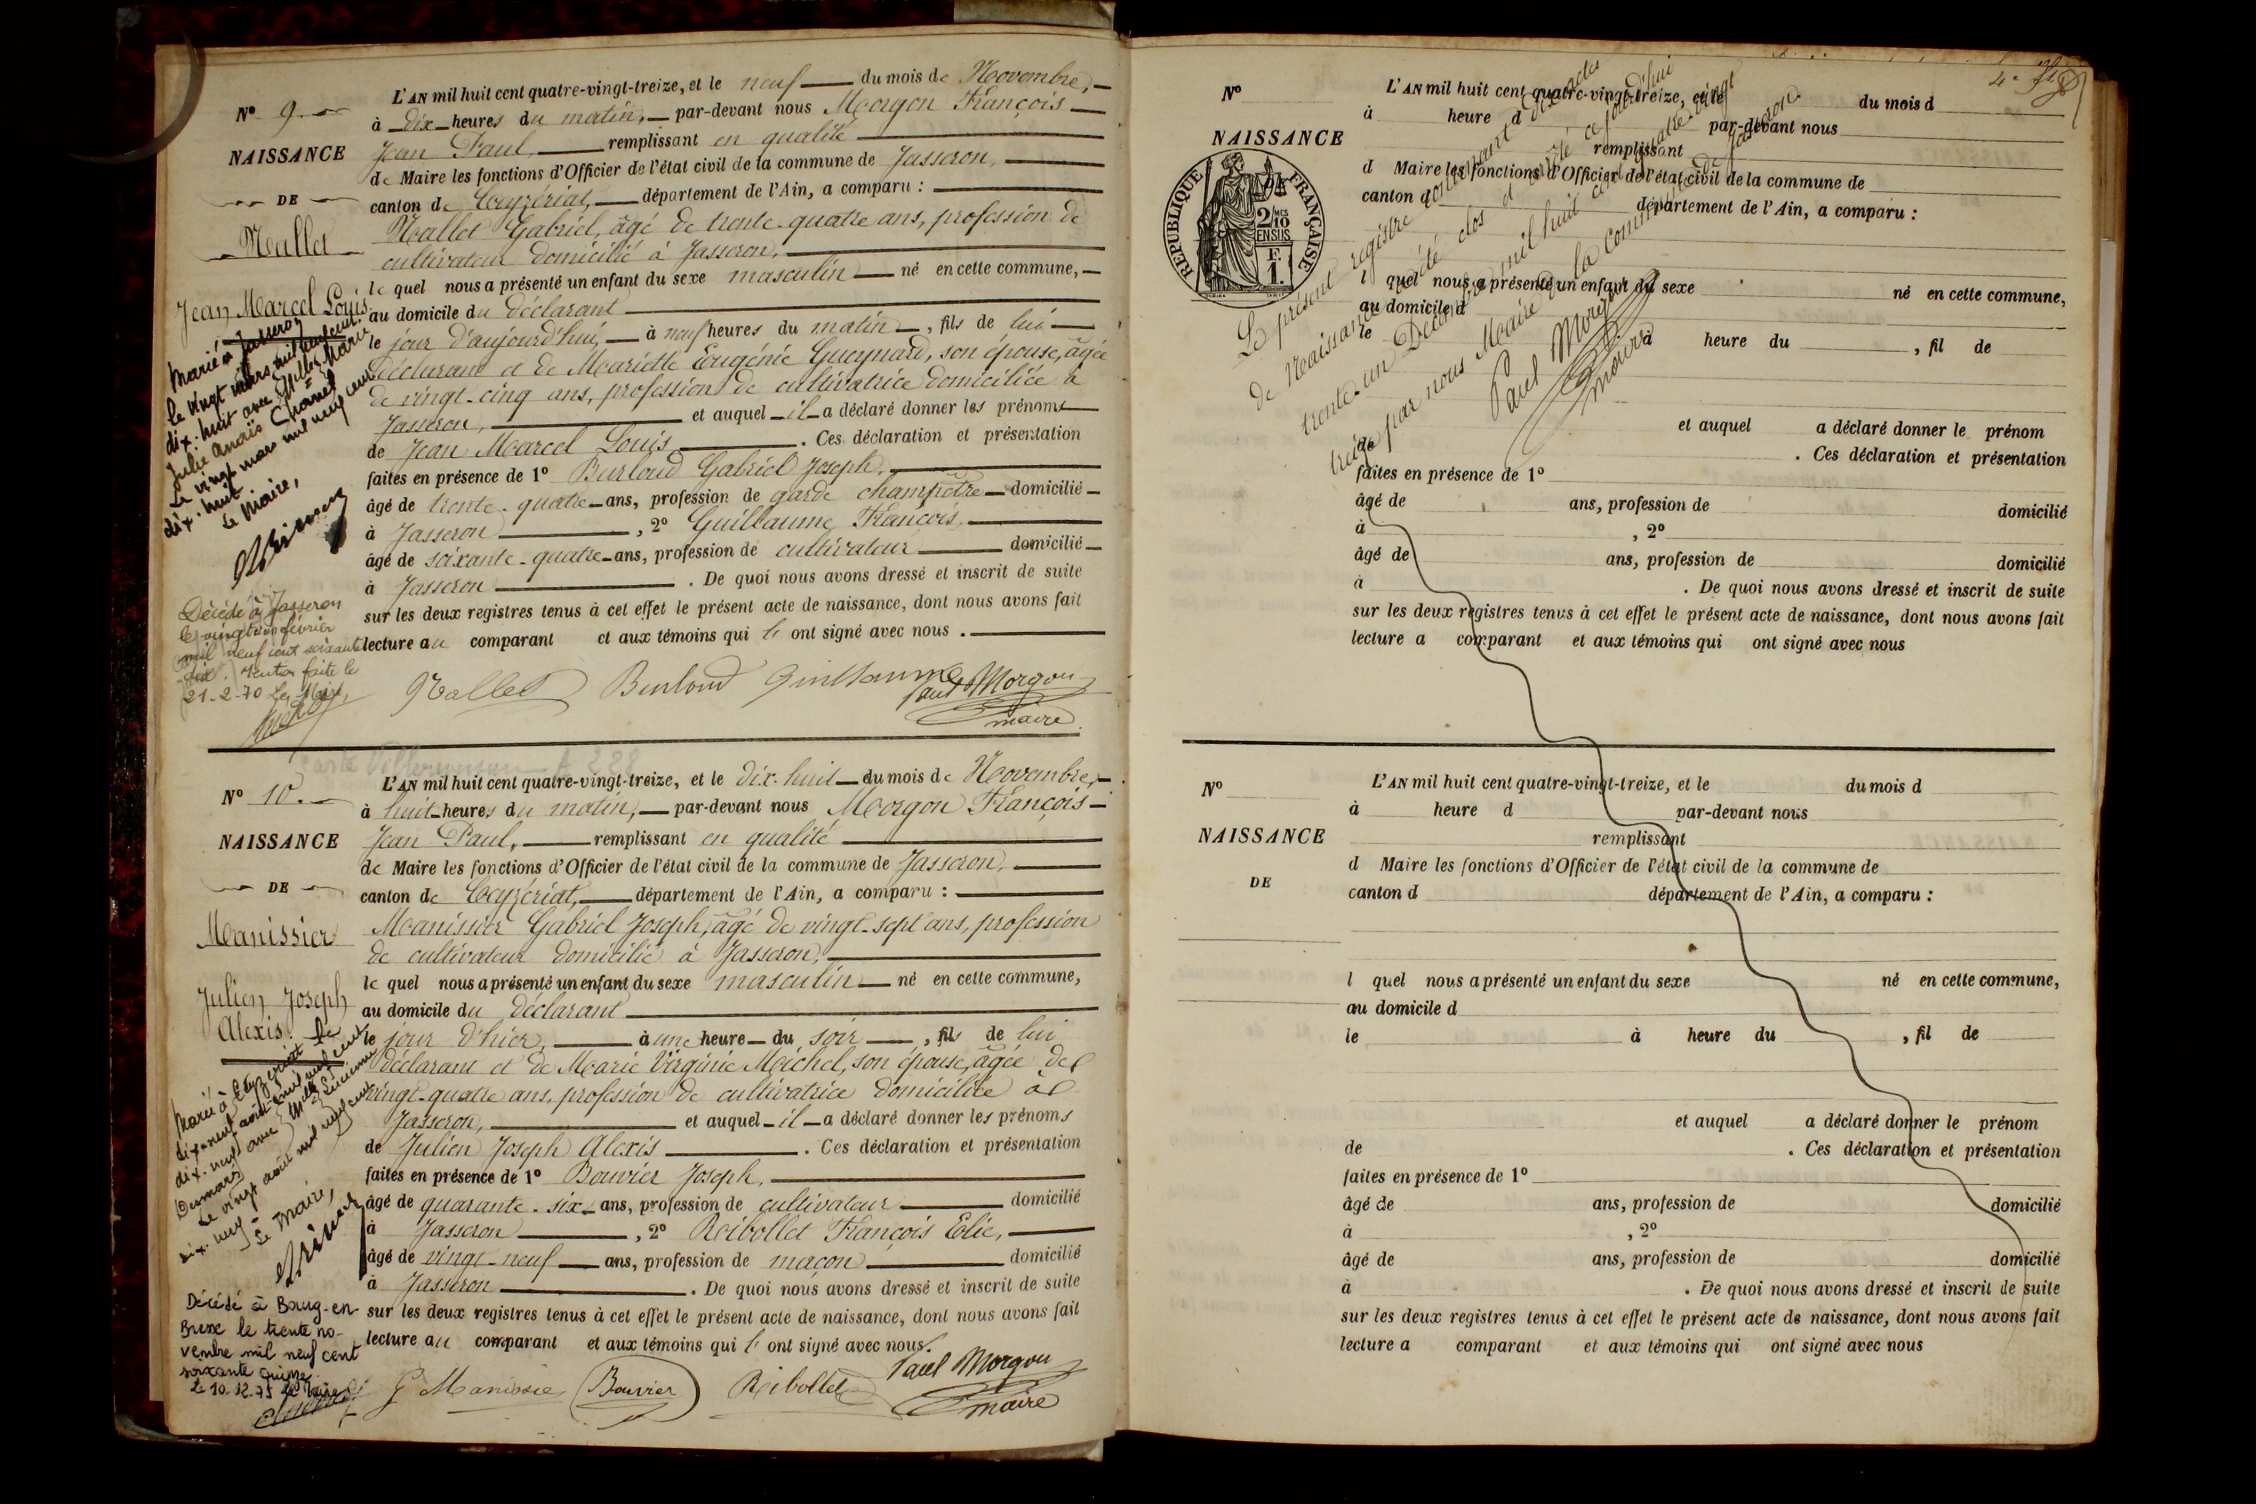 L'AN mil huit cent quatre-vingt-treize, et le neuf du mois de Novembre,
N° 9.
à dix heures du matin, par-devant nous Morgon François
NAISSANCE
Jean Paul, remplissant en qualité
de Maire les fonctions d'Officier de l'état civil de la commune de Jasseron,
DE
canton de Ceyzériat, département de l'Ain, a comparu :
Mallet
Mallet Gabriel, âgé de trente-quatre ans, profession de
cultivateur domicilié à Jasseron,
le quel nous a présenté un enfant du sexe masculin né en cette commune,
Jean Marcel Louis
au domicile du déclarant
le jour d'aujourd'hui, à neuf heures du matin, fils de lui
déclarant et de Mariette Eugénie Gueynard, son épouse, âgée
de vingt-cinq ans, profession de cultivatrice domiciliée à
Jasseron, et auquel il a déclaré donner les prénoms
de Jean Marcel Louis. Ces déclaration et présentation
faites en présence de 1° Burloud Gabriel Joseph,
âgé de trente-quatre ans, profession de garde champêtre domicilié
à Jasseron, 2° Guillaume François,
âgé de soixante-quatre ans, profession de cultivateur domicilié
à Jasseron. De quoi nous avons dressé et inscrit de suite
sur les deux registres tenus à cet effet le présent acte de naissance, dont nous avons fait
lecture au comparant et aux témoins qui l' ont signé avec nous.
Mallet Burloud Guillaume Paul Morgon
maire
Marié à Jasseron
le vingt mars mil neuf cent
dix-huit avec Marie
Julie Anaïs Chanel
Le vingt mars mil neuf cent
dix-huit
Le Maire,
Décédé à Jasseron
le vingt février
mil neuf cent soixante
dix. Mention faite le
21-2-70 Le Maire,
L'AN mil huit cent quatre-vingt-treize, et le dix-huit du mois de Novembre,
N° 10.
à huit heures du matin, par-devant nous Morgon François
NAISSANCE
Jean Paul, remplissant en qualité
de Maire les fonctions d'Officier de l'état civil de la commune de Jasseron,
DE
canton de Ceyzériat, département de l'Ain, a comparu :
Manissier
Manissier Gabriel Joseph, âgé de vingt-sept ans, profession
de cultivateur domicilié à Jasseron,
le quel nous a présenté un enfant du sexe masculin né en cette commune,
Julien Joseph
Alexis
au domicile du déclarant
le jour d'hier, à une heure du soir, fils de lui
déclarant et de Marie Virginie Michel, son épouse, âgée de
vingt-quatre ans, profession de cultivatrice domiciliée à
Jasseron, et auquel il a déclaré donner les prénoms
de Julien Joseph Alexis. Ces déclaration et présentation
faites en présence de 1° Bouvier Joseph,
âgé de quarante-six ans, profession de cultivateur domicilié
à Jasseron, 2° Reibollet François Elie,
âgé de vingt-neuf ans, profession de maçon domicilié
à Jasseron. De quoi nous avons dressé et inscrit de suite
sur les deux registres tenus à cet effet le présent acte de naissance, dont nous avons fait
lecture au comparant et aux témoins qui l' ont signé avec nous.
G Manissie Bouvier Reibollet Paul Morgon
maire
Marié à Ceyzériat le
dix-neuf août mil neuf cent
dix-neuf avec Lucienne
Dumarz
Le vingt août mil neuf cent
dix-neuf
Le Maire,
Décédé à Bourg-en-
Bresse le trente no-
vembre mil neuf cent
soixante quinze
Le 10.12.75 Le Maire
N°
L'AN mil huit cent quatre-vingt-treize, et le du mois d
à heure d par-devant nous
NAISSANCE
remplissant
d Maire les fonctions d'Officier de l'état civil de la commune de
canton d département de l'Ain, a comparu :
RÉPUBLIQUE FRANÇAISE
2/10
EN SUS
F.
1.
l quel nous a présenté un enfant du sexe né en cette commune,
au domicile d
le à heure du , fil de
et auquel a déclaré donner le prénom
de . Ces déclaration et présentation
faites en présence de 1°
âgé de ans, profession de domicilié
à , 2°
âgé de ans, profession de domicilié
à . De quoi nous avons dressé et inscrit de suite
sur les deux registres tenus à cet effet le présent acte de naissance, dont nous avons fait
lecture a comparant et aux témoins qui ont signé avec nous
Le présent registre contenant dix actes
de Naissance a été clos et arrêté ce jourd'hui
trente-un Décembre mil huit cent quatre-vingt
treize par nous Maire de la commune de Jasseron.
Paul Morgon
maire
N°
L'AN mil huit cent quatre-vingt-treize, et le du mois d
à heure d par-devant nous
NAISSANCE
remplissant
d Maire les fonctions d'Officier de l'état civil de la commune de
DE
canton d département de l'Ain, a comparu :
l quel nous a présenté un enfant du sexe né en cette commune,
au domicile d
le à heure du , fil de
et auquel a déclaré donner le prénom
de . Ces déclaration et présentation
faites en présence de 1°
âgé de ans, profession de domicilié
à , 2°
âgé de ans, profession de domicilié
à . De quoi nous avons dressé et inscrit de suite
sur les deux registres tenus à cet effet le présent acte de naissance, dont nous avons fait
lecture a comparant et aux témoins qui ont signé avec nous